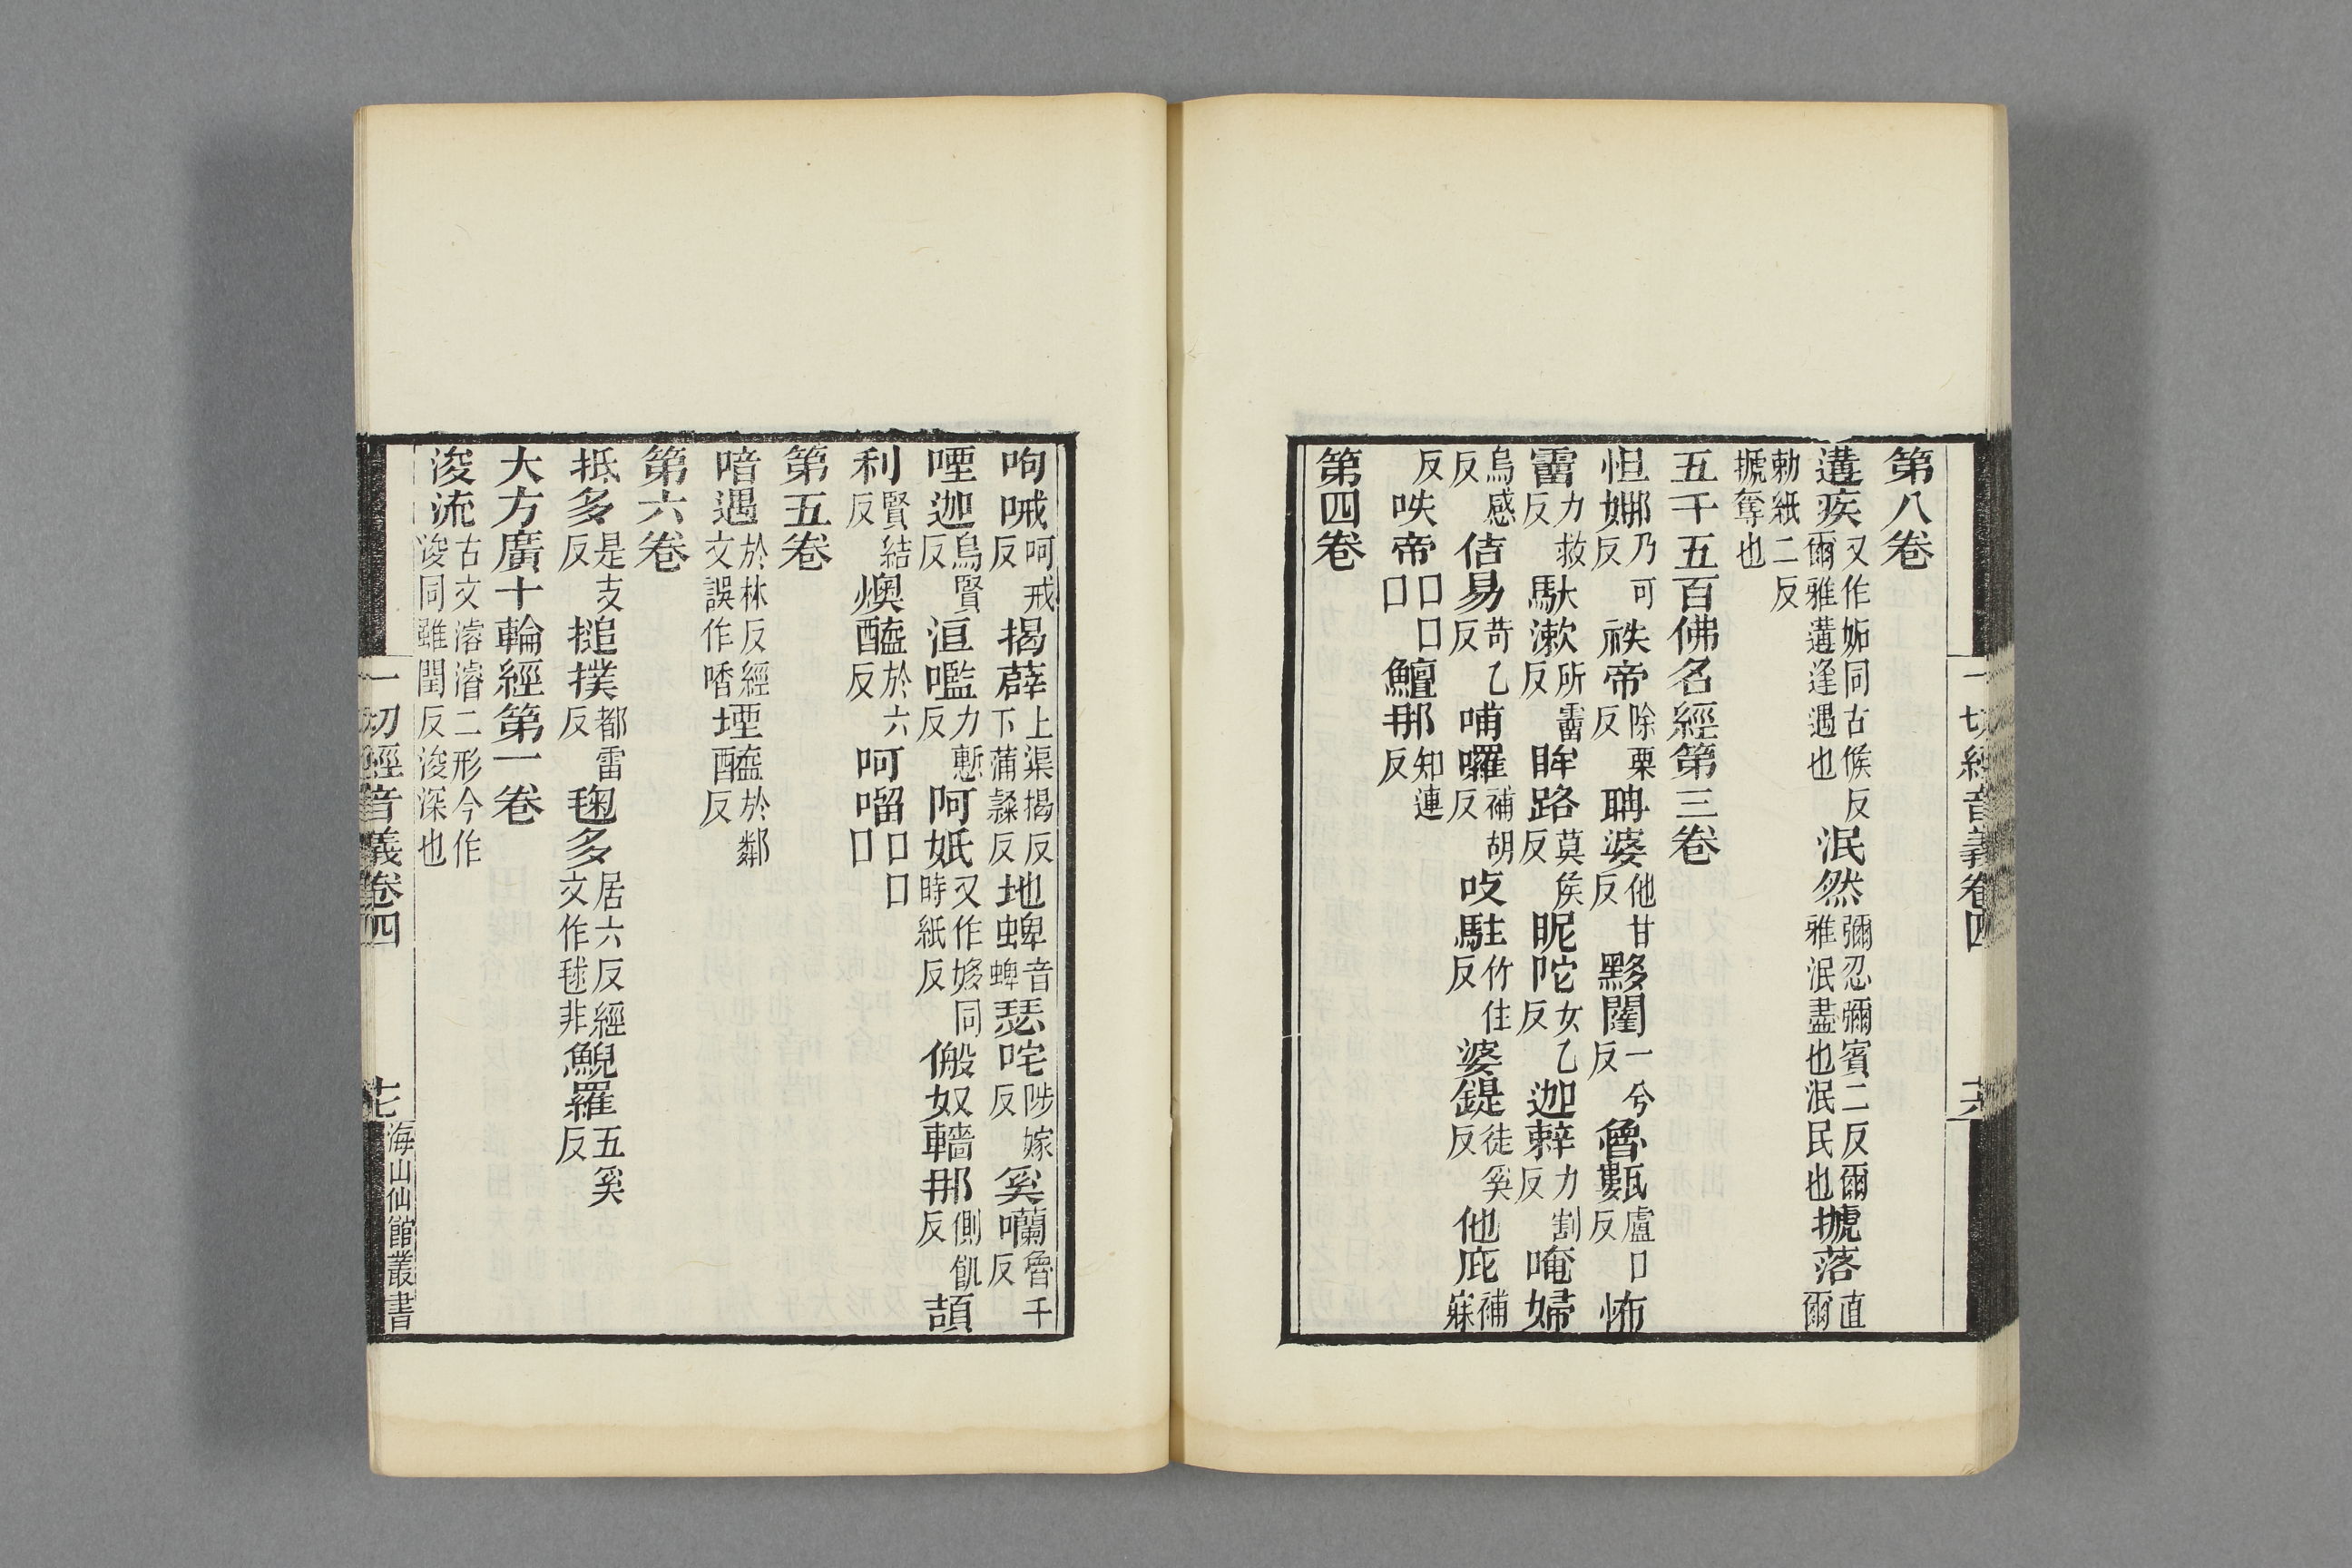 第八卷
遘疾又作姤同古候反爾雅遘逢遇也泯然彌忍彌賓二反爾雅泯盡也泯民也搋落直爾
勑紙二反搋奪也
五千五百佛名經第三卷
怛娜那乃可反袟帝除栗反聃婆他甘反黟闍一兮反魯㲈盧口反怖
霤力救反馱漱所霤反眸路莫侯反昵陀女乙反迦𨐖力割反唵婦
烏感反佶易苛乙反哺囉補胡反㕮駐竹住反婆鍉徒奚反他庇補寐
反咉帝口口口鱣那知連反
第四卷
一切經音義卷四
十六
呴㖑呵戒反揭薜上渠揭反下蒲𥻦反地蜱音蜱瑟咤陟嫁反奚囒魯千反
㖶迦烏賢反洹㘕力慙反阿妷又作姼同時紙反𠈻奴轖那側飢反頡
利賢結反燠醢於六反呵㗜口口口
第五卷
喑遇於林反經文誤作㖧堙醢於鄰反
第六卷
抵多是支反搥撲都雷反毱多居六反經文作毬非鯢羅五奚反
大方廣十輪經第一卷
浚流古文濬㴊二形今作浚同雖閏反浚深也
一切經音義卷四
十七
海山仙館叢書